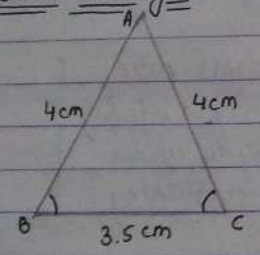 A
4cm
4cm
B
C
3.5cm